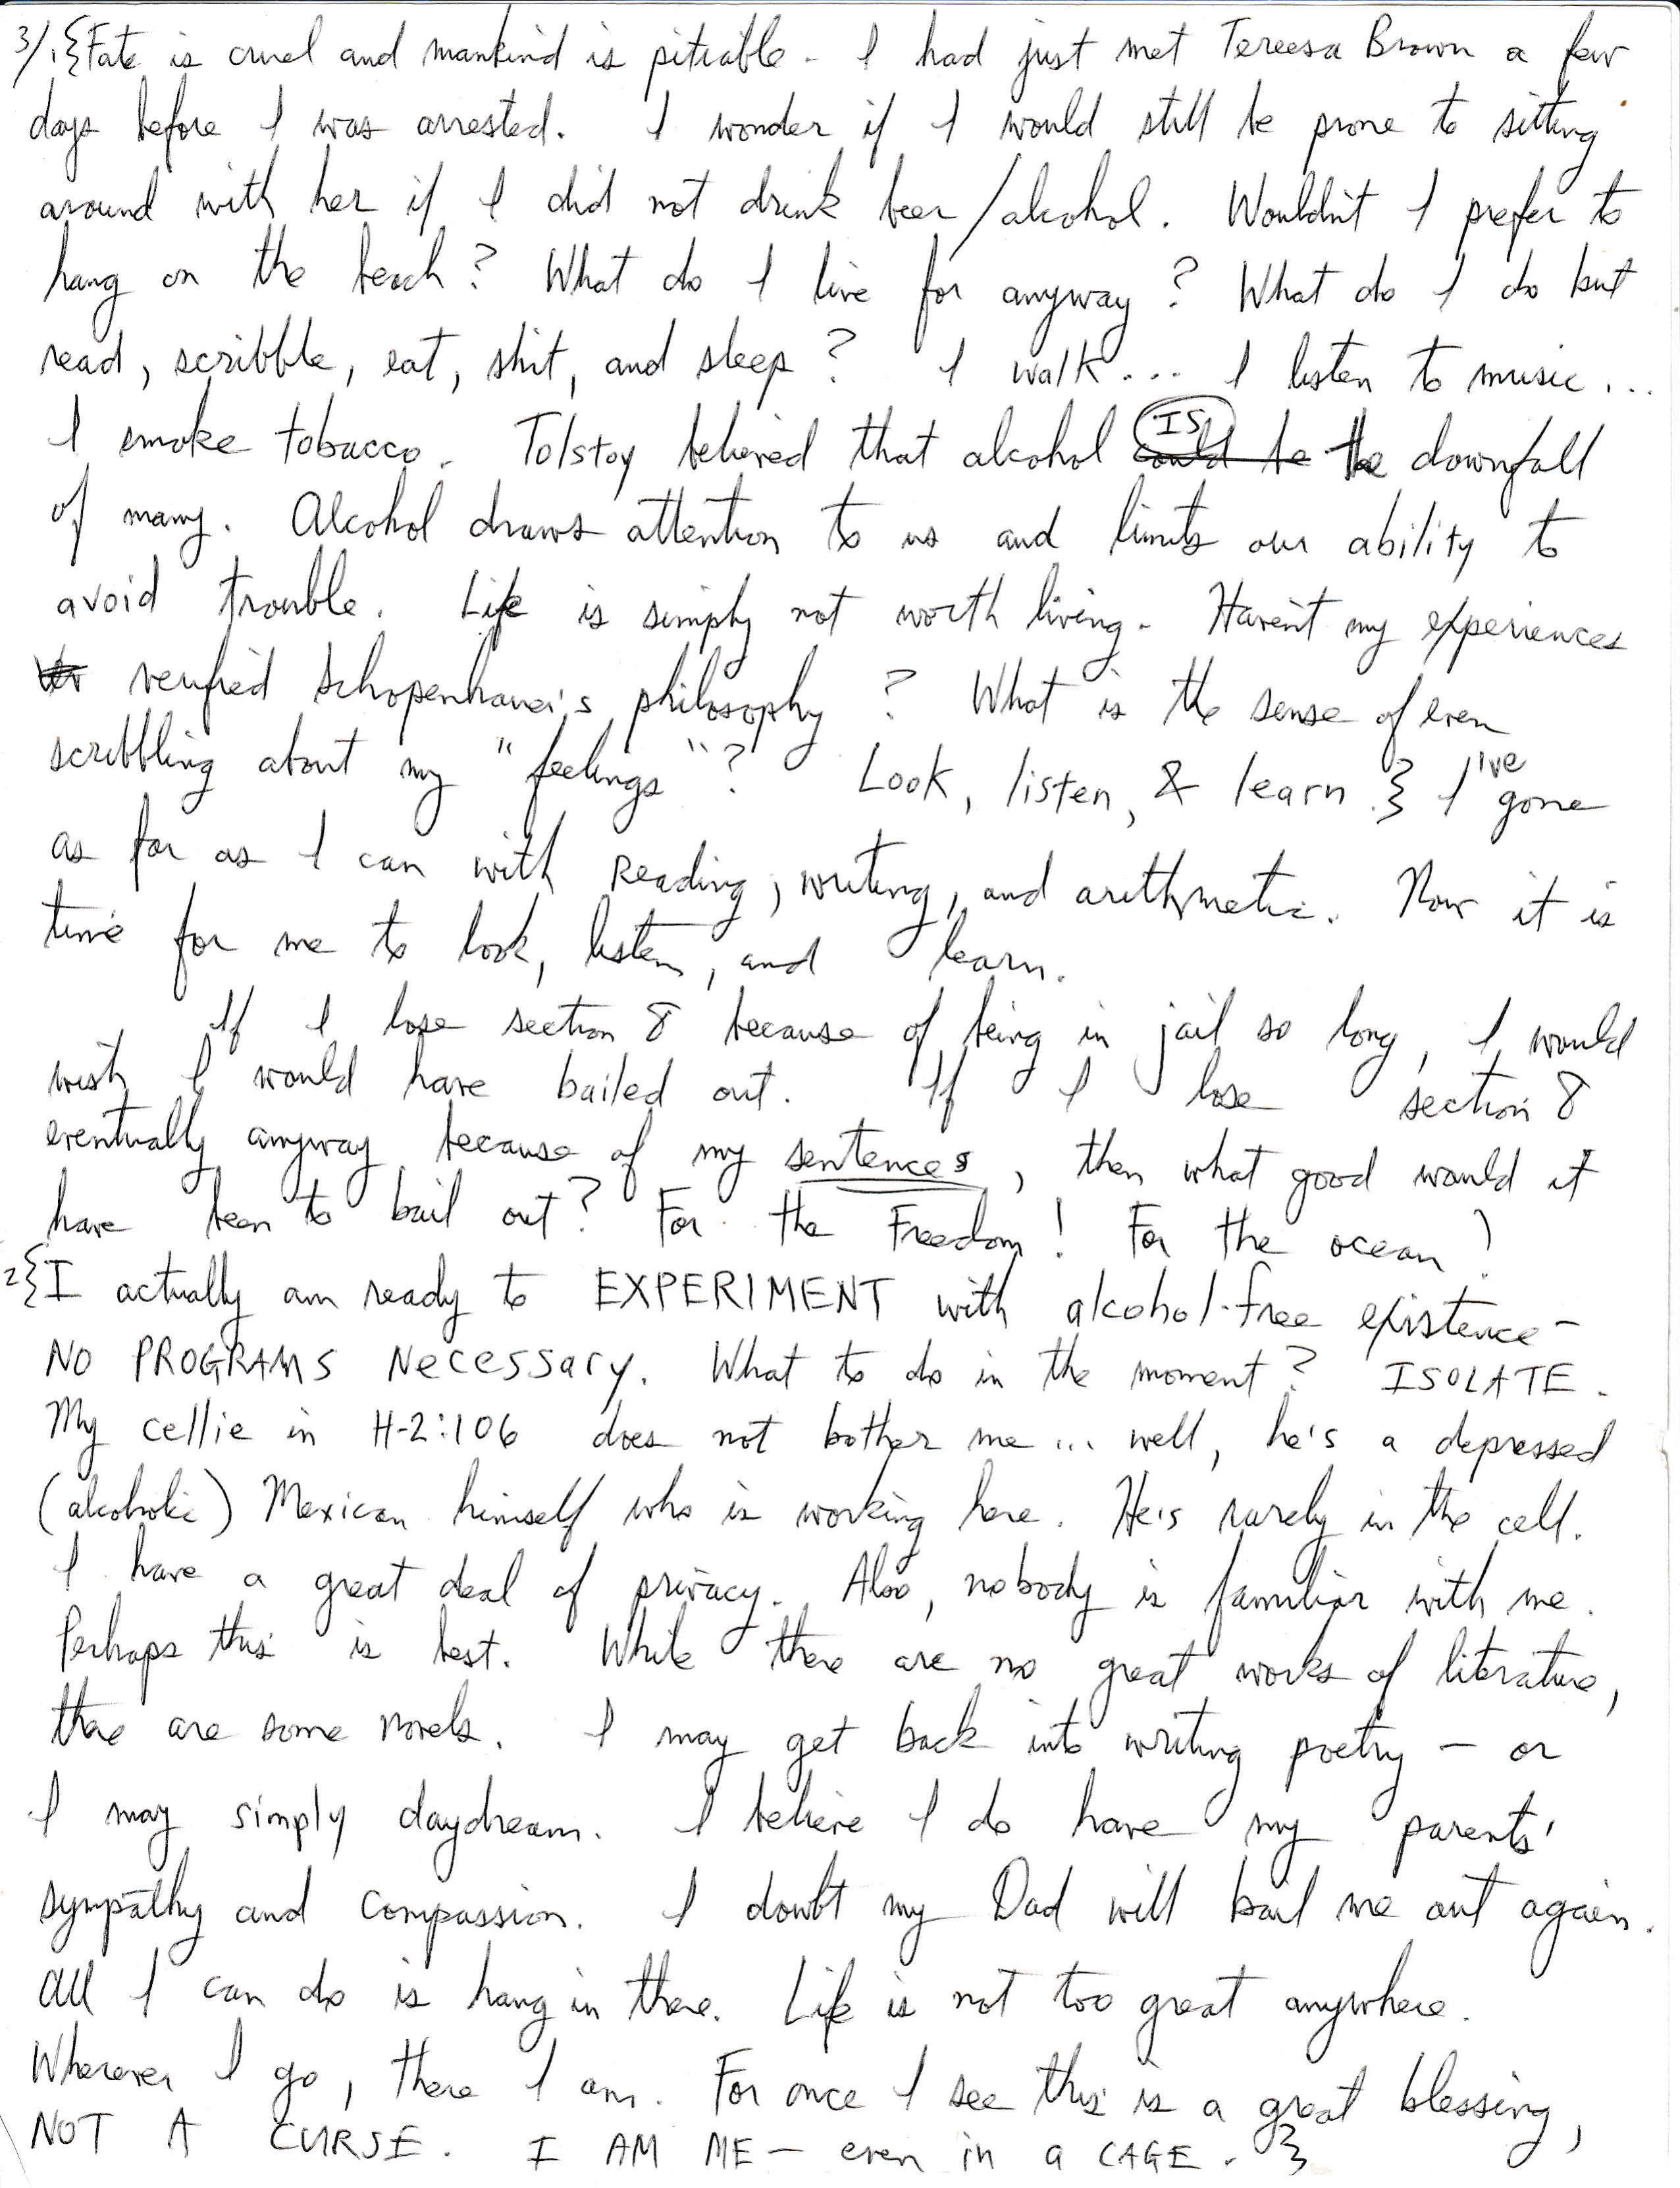 3/1{Fate is cruel and mankind is pitiable. I had just met Tereesa Brown a few
days before I was arrested. I wonder if I would still be prone to sitting
around with her if I did not drink beer/alcohol. Wouldn't I prefer to
hang on the beach? What do I live for anyway? What do I do but
read, scribble, eat, shit, and sleep? I walk... I listen to music...
I smoke tobacco. Tolstoy believed that alcohol IS could be the downfall
of many. Alcohol draws attention to us and limits our ability to
avoid trouble. Life is simply not worth living. Haven't my experiences
verified Schopenhauer's philosophy? What is the sense of even
scribbling about my "feelings"? Look, listen, & learn.} I've gone
as far as I can with reading, writing, and arithmetic. Now it is
time for me to look, listen, and learn.
If I lose section 8 because of being in jail so long, I would
wish I would have bailed out. If I lose section 8
eventually anyway because of my sentences, then what good would it
have been to bail out? For the Freedom! For the ocean!
2{I actually am ready to EXPERIMENT with alcohol-free existence -
NO PROGRAMS NeCESSARY. What to do in the moment? ISOLATE.
My cellie in H-2:106 does not bother me... well, he's a depressed
(alcoholic) Mexican himself who is working here. He's rarely in the cell.
I have a great deal of privacy. Also, nobody is familiar with me.
Perhaps this is best. While there are no great works of literature,
there are some novels. I may get back into writing poetry - or
I may simply daydream. I believe I do have my parents'
sympathy and compassion. I doubt my Dad will bail me out again.
All I can do is hang in there. Life is not too great anywhere.
Wherever I go, there I am. For once I see this is a great blessing,
NOT A CURSE. I AM ME - even in a CAGE.}